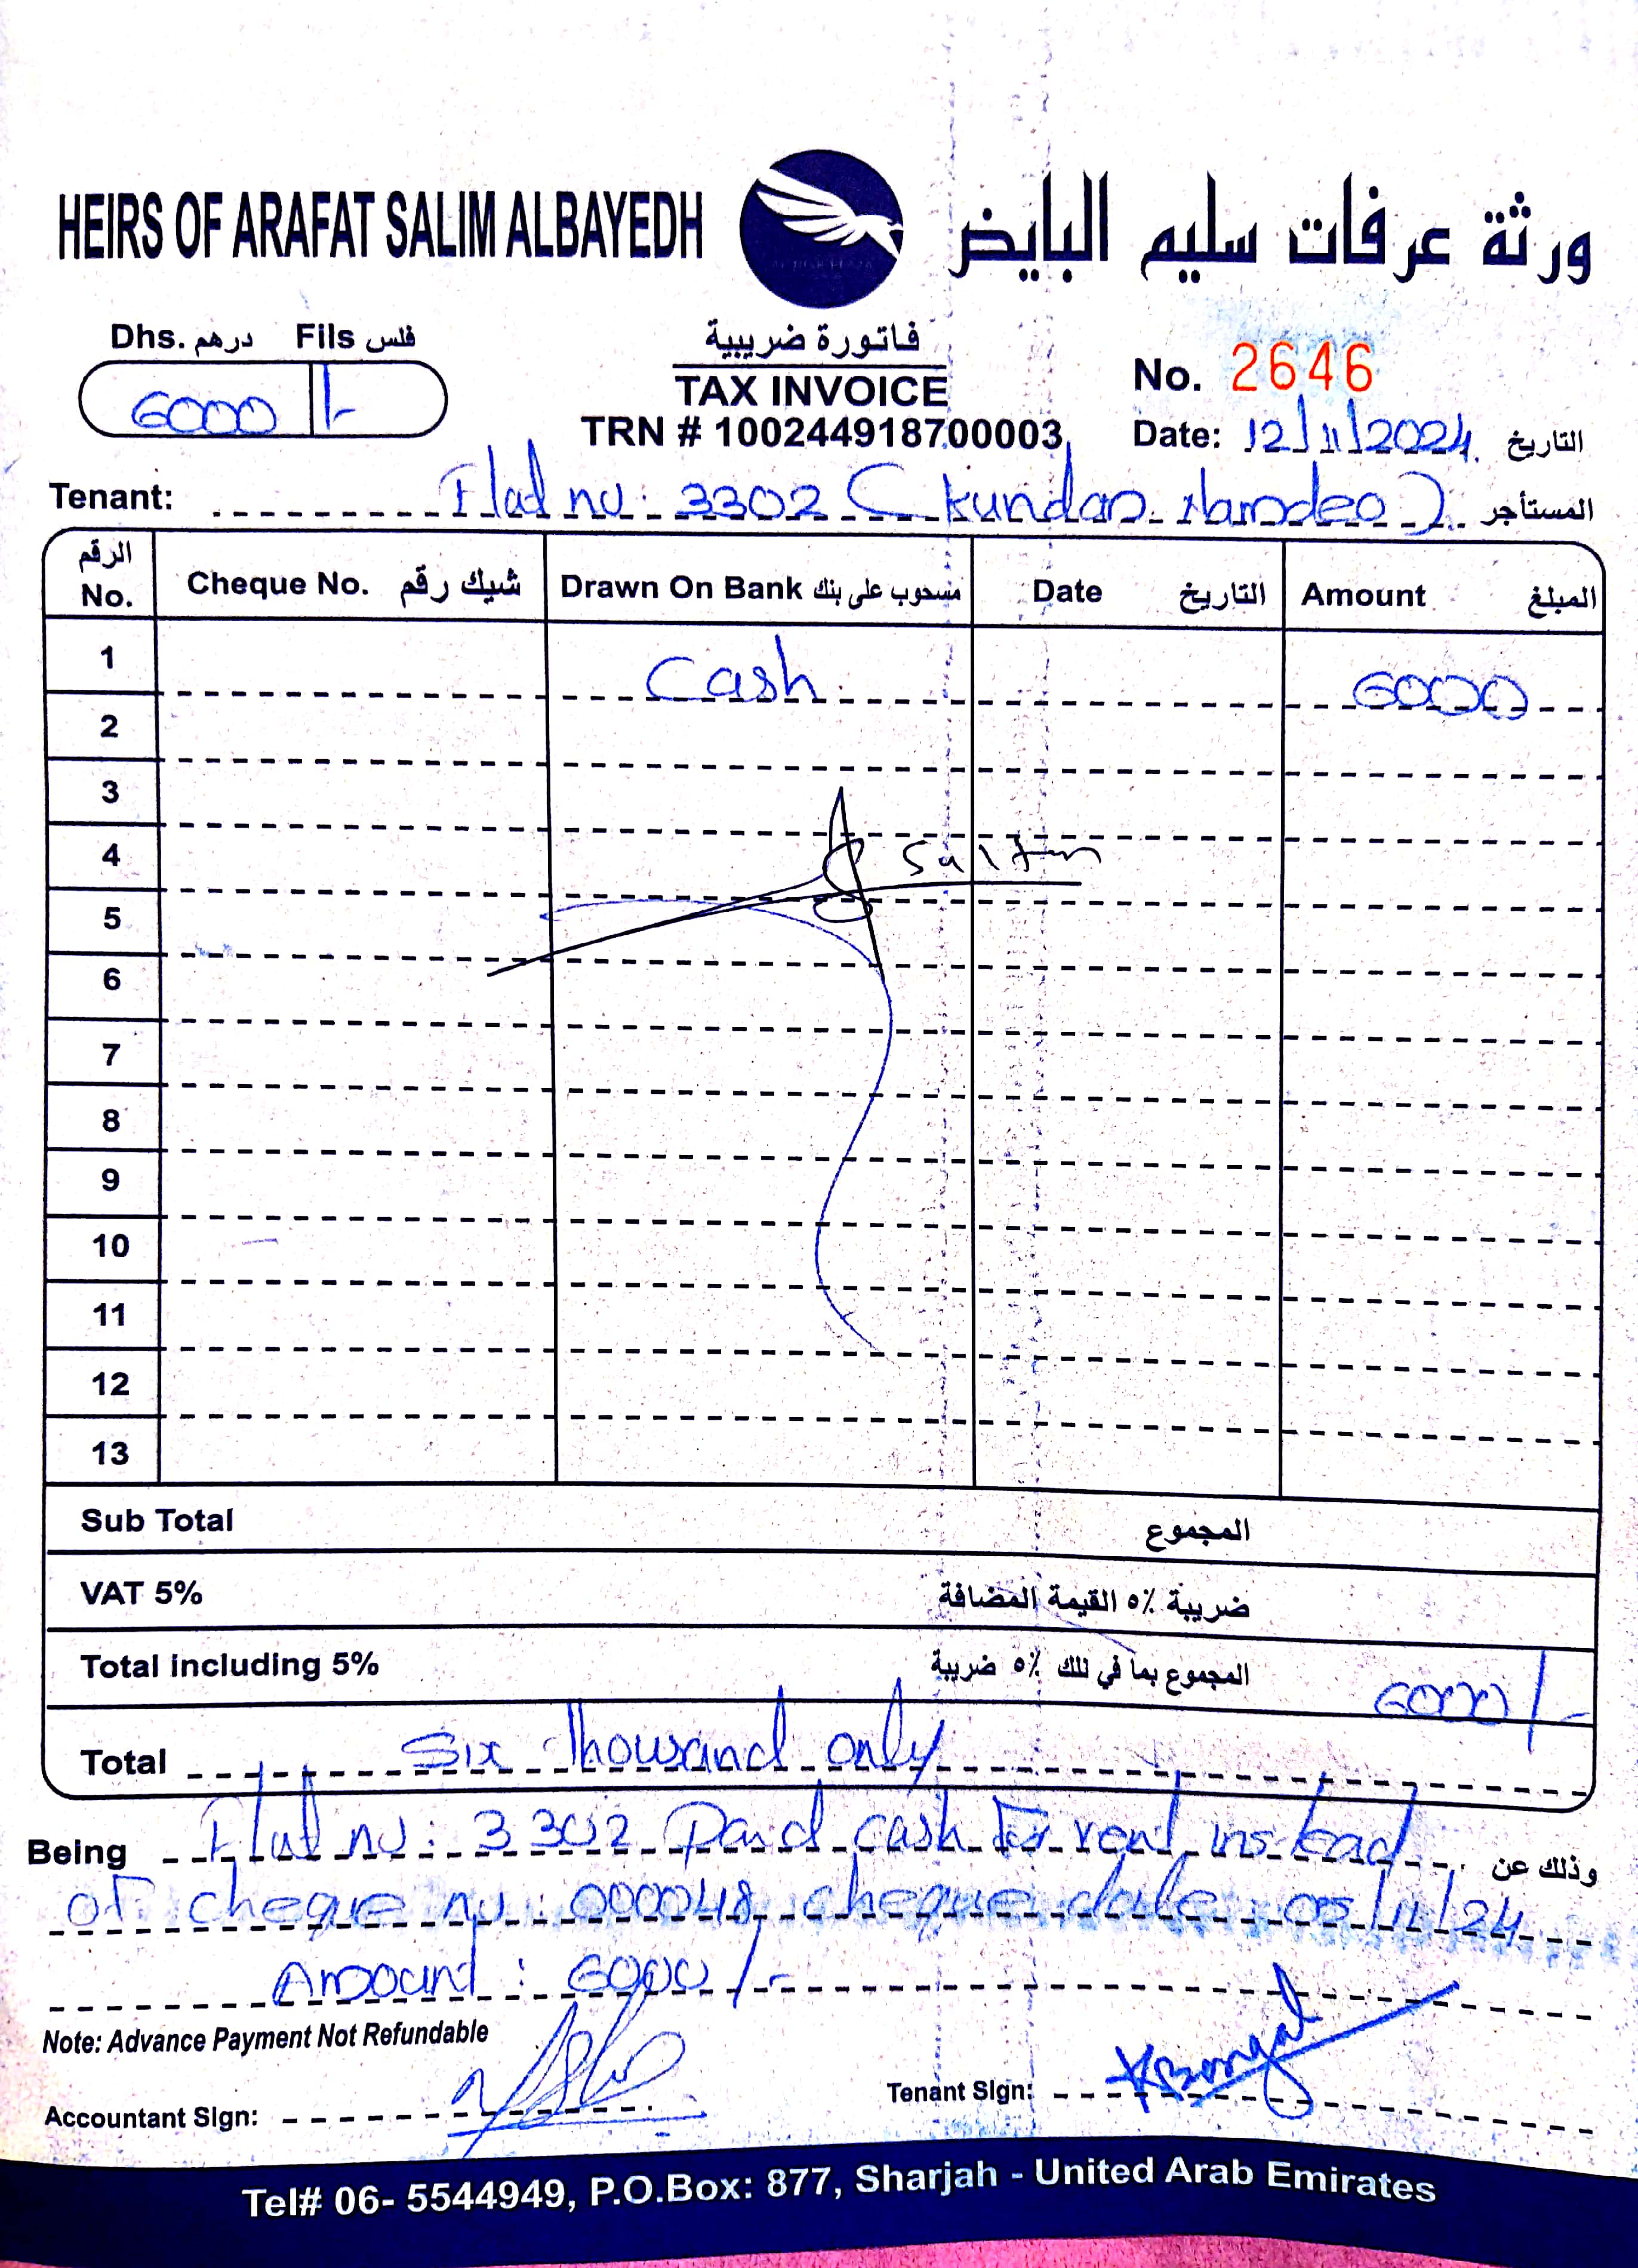 HEIRS OF ARAFAT SALIM ALBAYEDH ورثة عرفات سليم البايض
Dhs. درهم Fils فلس
6000 /-
فاتورة ضريبية
TAX INVOICE
TRN # 100244918700003
No. 2646
Date: 12/11/2024 التاريخ
Tenant: Flat no: 3302 (Kundan Namdeo) المستأجر
الرقم No. Cheque No. شيك رقم Drawn On Bank مسحوب على بنك Date التاريخ Amount المبلغ
1 Cash 6000
2
3
4 Sultan
5
6
7
8
9
10
11
12
13
Sub Total المجموع
VAT 5% ضريبة ٥٪ القيمة المضافة
Total including 5% المجموع بما في ذلك ٥٪ ضريبة 6000/-
Total Six Thousand only
Being Flat no: 3302 Paid cash for rent instead وذلك عن
of cheque no: 000048 cheque date: 05/11/24
Amount: 6000/-
Note: Advance Payment Not Refundable
Accountant Sign:
Tenant Sign:
Tel# 06- 5544949, P.O.Box: 877, Sharjah - United Arab Emirates